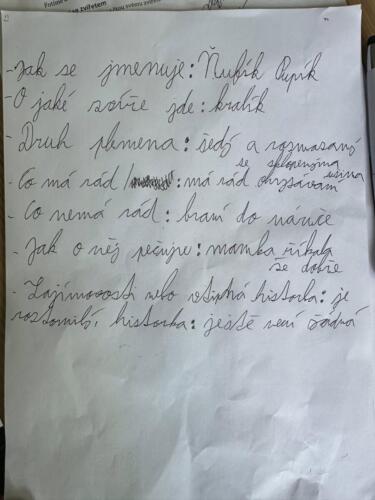 Fotíme
zvířetem
- Jak se jmenuje: Ňufík Pupík
- O jaké zvíře jde: kralík
- Druh plemena: šedí a rozmazaní
se sklopenýma ušima
- Co má rád : má rád chrysávání
- Co nemá rád: braní do náruče
- Jak o něj pečuje: mamka říkala
že dobře
- Zajímavosti nebo vtipná historka: je
roztomilí, historka: ještě není žádná